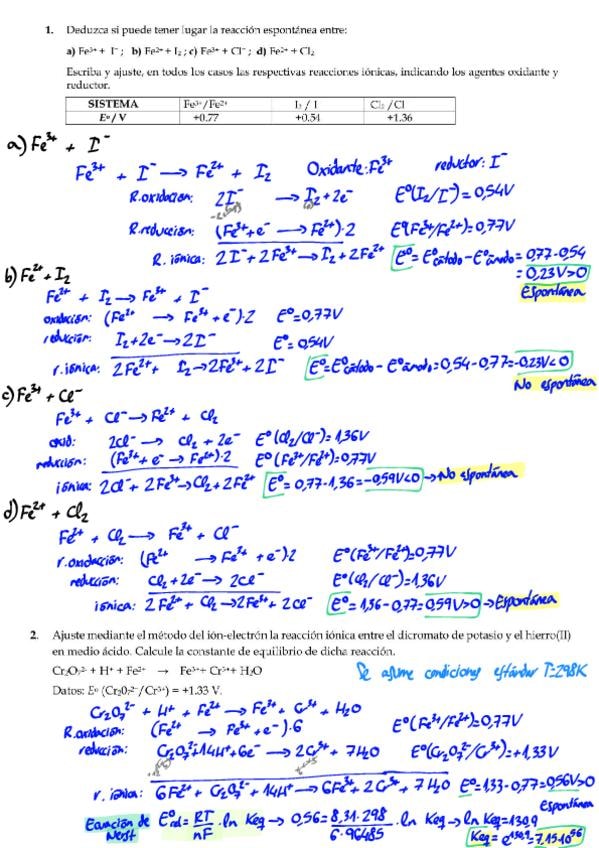 1. Deduzca si puede tener lugar la reacción espontánea entre:
a) Fe³⁺ + I⁻ ; b) Fe²⁺ + I₂ ; c) Fe³⁺ + Cl⁻ ; d) Fe²⁺ + Cl₂
Escriba y ajuste, en todos los casos las respectivas reacciones iónicas, indicando los agentes oxidante y
reductor.
SISTEMA Fe³⁺/Fe²⁺ I₂ / I Cl₂ /Cl
Eº / V +0.77 +0.54 +1.36
a) Fe³⁺ + I⁻
Fe³⁺ + I⁻ → Fe²⁺ + I₂ Oxidante: Fe³⁺ reductor: I⁻
R.oxidacion: 2I⁻ → I₂ + 2e⁻ Eº(I₂/I⁻) = 0,54V
R.reducción: (Fe³⁺ + e⁻ → Fe²⁺)·2 Eº(Fe³⁺/Fe²⁺) = 0,77V
R. iónica: 2I⁻ + 2Fe³⁺ → I₂ + 2Fe²⁺ Eº = Eºcátodo - Eºánodo = 0,77 - 0,54
= 0,23V > 0
Espontánea
b) Fe²⁺ + I₂
Fe²⁺ + I₂ → Fe³⁺ + I⁻
oxidación: (Fe²⁺ → Fe³⁺ + e⁻)·2 Eº = 0,77V
reducción: I₂ + 2e⁻ → 2I⁻ Eº = 0,54V
r.iónica: 2Fe²⁺ + I₂ → 2Fe³⁺ + 2I⁻ Eº = Eºcátodo - Eºánodo = 0,54 - 0,77 = -0,23V < 0
No espontánea
c) Fe³⁺ + Cl⁻
Fe³⁺ + Cl⁻ → Fe²⁺ + Cl₂
oxid: 2Cl⁻ → Cl₂ + 2e⁻ Eº(Cl₂/Cl⁻) = 1,36V
reducción: (Fe³⁺ + e⁻ → Fe²⁺)·2 Eº(Fe³⁺/Fe²⁺) = 0,77V
iónica: 2Cl⁻ + 2Fe³⁺ → Cl₂ + 2Fe²⁺ Eº = 0,77 - 1,36 = -0,59V < 0 → No espontánea
d) Fe²⁺ + Cl₂
Fe²⁺ + Cl₂ → Fe³⁺ + Cl⁻
r.oxidación: (Fe²⁺ → Fe³⁺ + e⁻)·2 Eº(Fe³⁺/Fe²⁺) = 0,77V
reducción: Cl₂ + 2e⁻ → 2Cl⁻ Eº(Cl₂/Cl⁻) = 1,36V
iónica: 2Fe²⁺ + Cl₂ → 2Fe³⁺ + 2Cl⁻ Eº = 1,36 - 0,77 = 0,59V > 0 → Espontánea
2. Ajuste mediante el método del ión-electrón la reacción iónica entre el dicromato de potasio y el hierro(II)
en medio ácido. Calcule la constante de equilibrio de dicha reacción.
Cr₂O₇²⁻ + H⁺ + Fe²⁺ → Fe³⁺ + Cr³⁺ + H₂O Se asume condiciones estándar T=298K
Datos: Eº (Cr₂O₇²⁻/Cr³⁺) = +1.33 V.
Cr₂O₇²⁻ + H⁺ + Fe²⁺ → Fe³⁺ + Cr³⁺ + H₂O
R.oxidación: (Fe²⁺ → Fe³⁺ + e⁻)·6 Eº(Fe³⁺/Fe²⁺) = 0,77V
reducción: Cr₂O₇²⁻ + 14H⁺ + 6e⁻ → 2Cr³⁺ + 7H₂O Eº(Cr₂O₇²⁻/Cr³⁺) = +1,33V
r. iónica: 6Fe²⁺ + Cr₂O₇²⁻ + 14H⁺ → 6Fe³⁺ + 2Cr³⁺ + 7H₂O Eº = 1,33 - 0,77 = 0,56V > 0
Espontánea
Ecuación de Nerst Eº = RT/nF · ln Keq → 0,56 = 8,31·298/6·96485 · ln Keq → ln Keq = 130,9
Keq = e¹³⁰,⁹ = 7,15·10⁵⁶